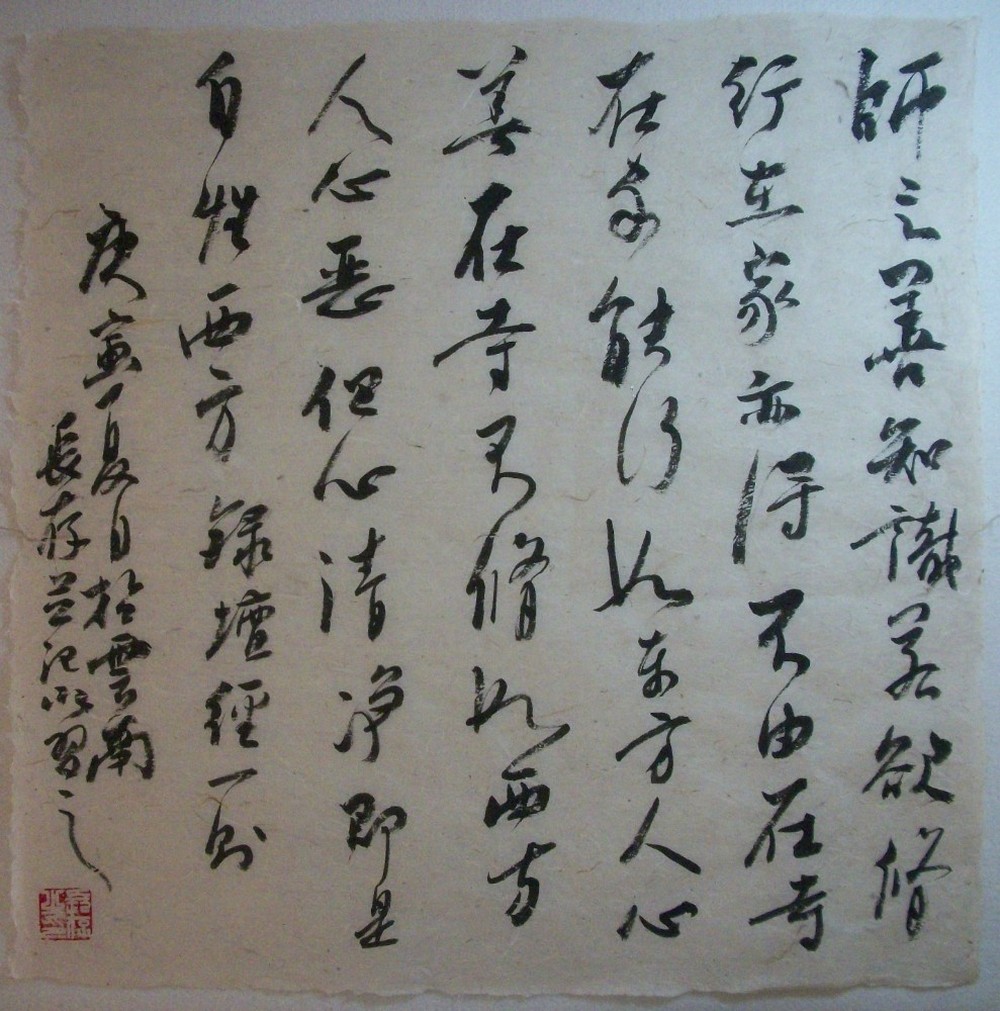 師言善知識若欲脩
行在家亦得不由在寺
在家能行如東方人心
善在寺不脩如西方
人心惡但心清淨即是
自性西方錄壇經一則
庚寅夏日於雲南
長存並記所習之